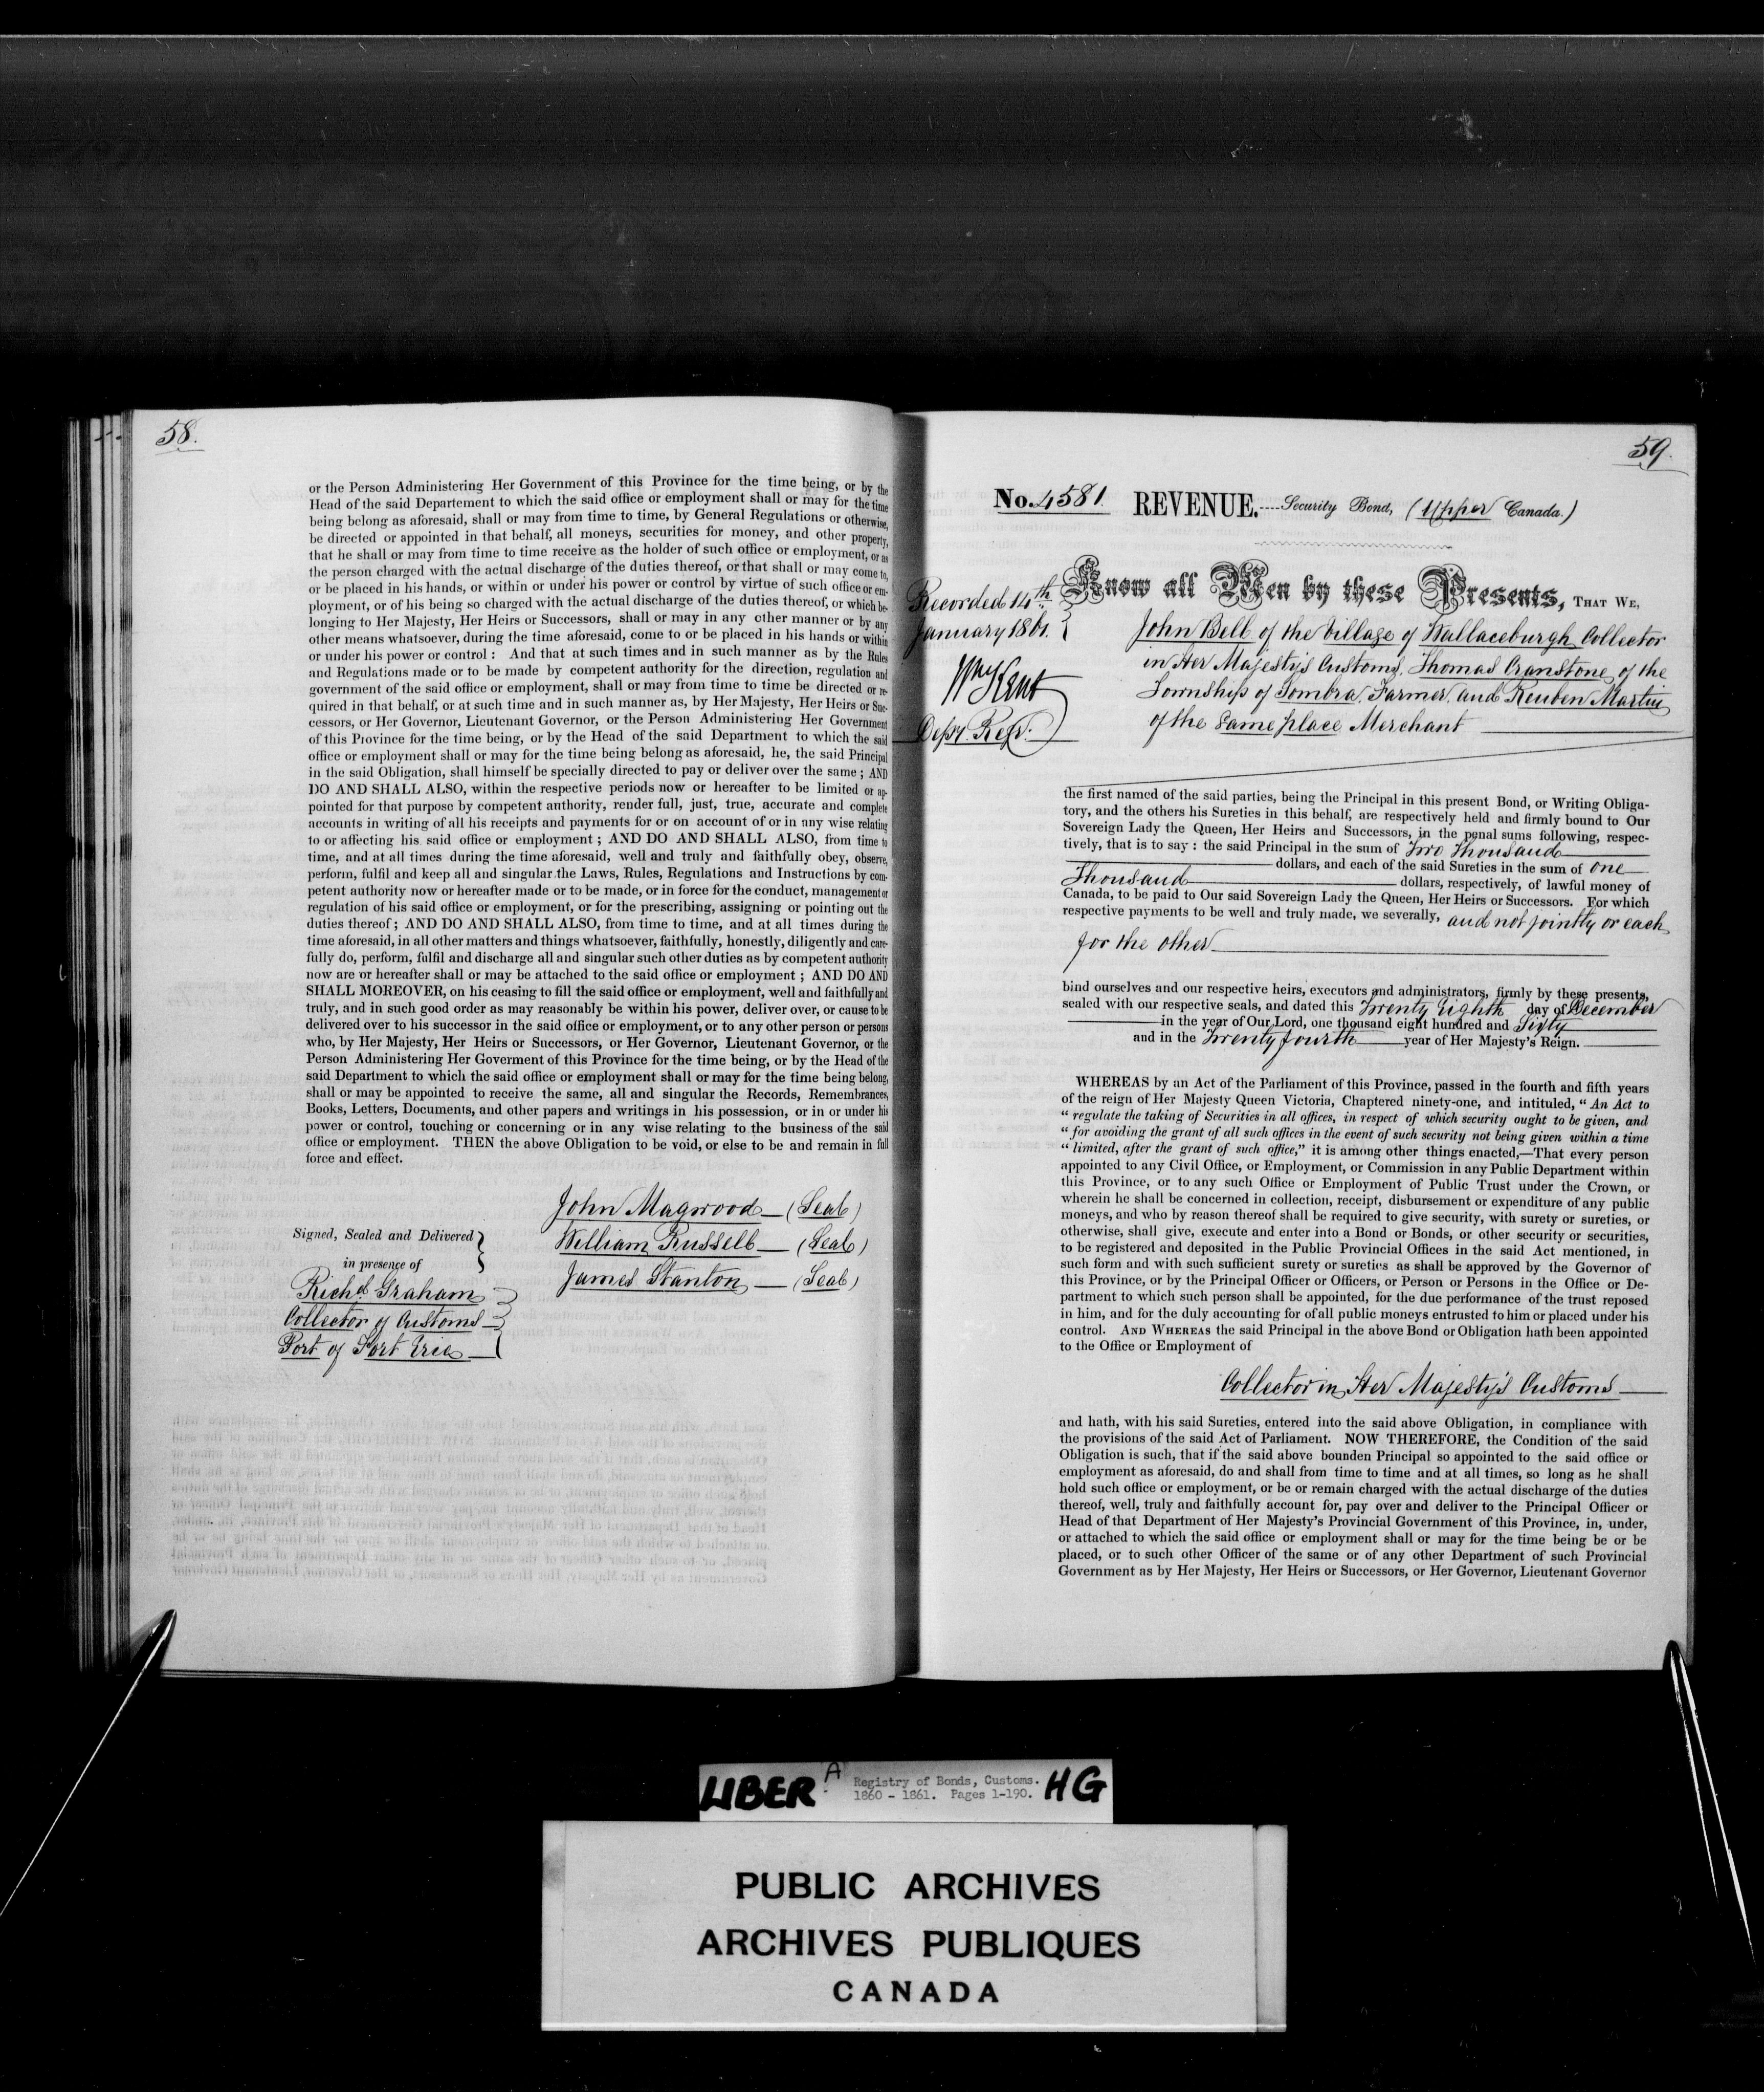 58.
or the Person Administering Her Government of this Province for the time being, or by the
Head of the said Departement to which the said office or employment shall or may for the time
being belong as aforesaid, shall or may from time to time, by General Regulations or otherwise,
be directed or appointed in that behalf, all moneys, securities for money, and other property,
that he shall or may from time to time receive as the holder of such office or employment, or as
the person charged with the actual discharge of the duties thereof, or that shall or may come to,
or be placed in his hands, or within or under his power or control by virtue of such office or em-
ployment, or of his being so charged with the actual discharge of the duties thereof, or which be-
longing to Her Majesty, Her Heirs or Successors, shall or may in any other manner or by any
other means whatsoever, during the time aforesaid, come to or be placed in his hands or within
or under his power or control : And that at such times and in such manner as by the Rules
and Regulations made or to be made by competent authority for the direction, regulation and
government of the said office or employment, shall or may from time to time be directed or re-
quired in that behalf, or at such time and in such manner as, by Her Majesty, Her Heirs or Suc-
cessors, or Her Governor, Lieutenant Governor, or the Person Administering Her Government
of this Province for the time being, or by the Head of the said Department to which the said
office or employment shall or may for the time being belong as aforesaid, he, the said Principal
in the said Obligation, shall himself be specially directed to pay or deliver over the same ; AND
DO AND SHALL ALSO, within the respective periods now or hereafter to be limited or ap-
pointed for that purpose by competent authority, render full, just, true, accurate and complete
accounts in writing of all his receipts and payments for or on account of or in any wise relating
to or affecting his said office or employment ; AND DO AND SHALL ALSO, from time to
time, and at all times during the time aforesaid, well and truly and faithfully obey, observe,
perform, fulfil and keep all and singular the Laws, Rules, Regulations and Instructions by com-
petent authority now or hereafter made or to be made, or in force for the conduct, management or
regulation of his said office or employment, or for the prescribing, assigning or pointing out the
duties thereof ; AND DO AND SHALL ALSO, from time to time, and at all times during the
time aforesaid, in all other matters and things whatsoever, faithfully, honestly, diligently and care-
fully do, perform, fulfil and discharge all and singular such other duties as by competent authority
now are or hereafter shall or may be attached to the said office or employment ; AND DO AND
SHALL MOREOVER, on his ceasing to fill the said office or employment, well and faithfully and
truly, and in such good order as may reasonably be within his power, deliver over, or cause to be
delivered over to his successor in the said office or employment, or to any other person or persons
who, by Her Majesty, Her Heirs or Successors, or Her Governor, Lieutenant Governor, or the
Person Administering Her Goverment of this Province for the time being, or by the Head of the
said Department to which the said office or employment shall or may for the time being belong,
shall or may be appointed to receive the same, all and singular the Records, Remembrances,
Books, Letters, Documents, and other papers and writings in his possession, or in or under his
power or control, touching or concerning or in any wise relating to the business of the said
office or employment. THEN the above Obligation to be void, or else to be and remain in full
force and effect.
John Magwood (Seal)
William Russell (Seal)
James Stanton (Seal)
Signed, Sealed and Delivered
in presence of
Richd. Graham
Collector of Customs
Port of Fort Erie
59.
No. 4581. REVENUE.----Security Bond, (Upper Canada.)
Recorded 14th
January 1861.
Wm Kent
Depy. Regr.
Know all Men by these Presents, THAT WE,
John Bell of the Village of Wallaceburgh Collector
in Her Majesty's Customs, Thomas Cranstone of the
Township of Sombra, Farmer, and Reuben Martin
of the same place Merchant
the first named of the said parties, being the Principal in this present Bond, or Writing Obliga-
tory, and the others his Sureties in this behalf, are respectively held and firmly bound to Our
Sovereign Lady the Queen, Her Heirs and Successors, in the penal sums following, respec-
tively, that is to say : the said Principal in the sum of Two Thousand
dollars, and each of the said Sureties in the sum of one
Thousand dollars, respectively, of lawful money of
Canada, to be paid to Our said Sovereign Lady the Queen, Her Heirs or Successors. For which
respective payments to be well and truly made, we severally, and not jointly or each
for the other
bind ourselves and our respective heirs, executors and administrators, firmly by these presents,
sealed with our respective seals, and dated this Twenty Eighth day of December
in the year of Our Lord, one thousand eight hundred and Sixty
and in the Twenty fourth year of Her Majesty's Reign.
WHEREAS by an Act of the Parliament of this Province, passed in the fourth and fifth years
of the reign of Her Majesty Queen Victoria, Chaptered ninety-one, and intituled, " An Act to
" regulate the taking of Securities in all offices, in respect of which security ought to be given, and
" for avoiding the grant of all such offices in the event of such security not being given within a time
" limited, after the grant of such office," it is among other things enacted,—That every person
appointed to any Civil Office, or Employment, or Commission in any Public Department within
this Province, or to any such Office or Employment of Public Trust under the Crown, or
wherein he shall be concerned in collection, receipt, disbursement or expenditure of any public
moneys, and who by reason thereof shall be required to give security, with surety or sureties, or
otherwise, shall give, execute and enter into a Bond or Bonds, or other security or securities,
to be registered and deposited in the Public Provincial Offices in the said Act mentioned, in
such form and with such sufficient surety or sureties as shall be approved by the Governor of
this Province, or by the Principal Officer or Officers, or Person or Persons in the Office or De-
partment to which such person shall be appointed, for the due performance of the trust reposed
in him, and for the duly accounting for of all public moneys entrusted to him or placed under his
control. AND WHEREAS the said Principal in the above Bond or Obligation hath been appointed
to the Office or Employment of
Collector in Her Majesty's Customs
and hath, with his said Sureties, entered into the said above Obligation, in compliance with
the provisions of the said Act of Parliament. NOW THEREFORE, the Condition of the said
Obligation is such, that if the said above bounden Principal so appointed to the said office or
employment as aforesaid, do and shall from time to time and at all times, so long as he shall
hold such office or employment, or be or remain charged with the actual discharge of the duties
thereof, well, truly and faithfully account for, pay over and deliver to the Principal Officer or
Head of that Department of Her Majesty's Provincial Government of this Province, in, under,
or attached to which the said office or employment shall or may for the time being be or be
placed, or to such other Officer of the same or of any other Department of such Provincial
Government as by Her Majesty, Her Heirs or Successors, or Her Governor, Lieutenant Governor
LIBER A Registry of Bonds, Customs. HG
1860 - 1861. Pages 1-190.
PUBLIC ARCHIVES
ARCHIVES PUBLIQUES
CANADA